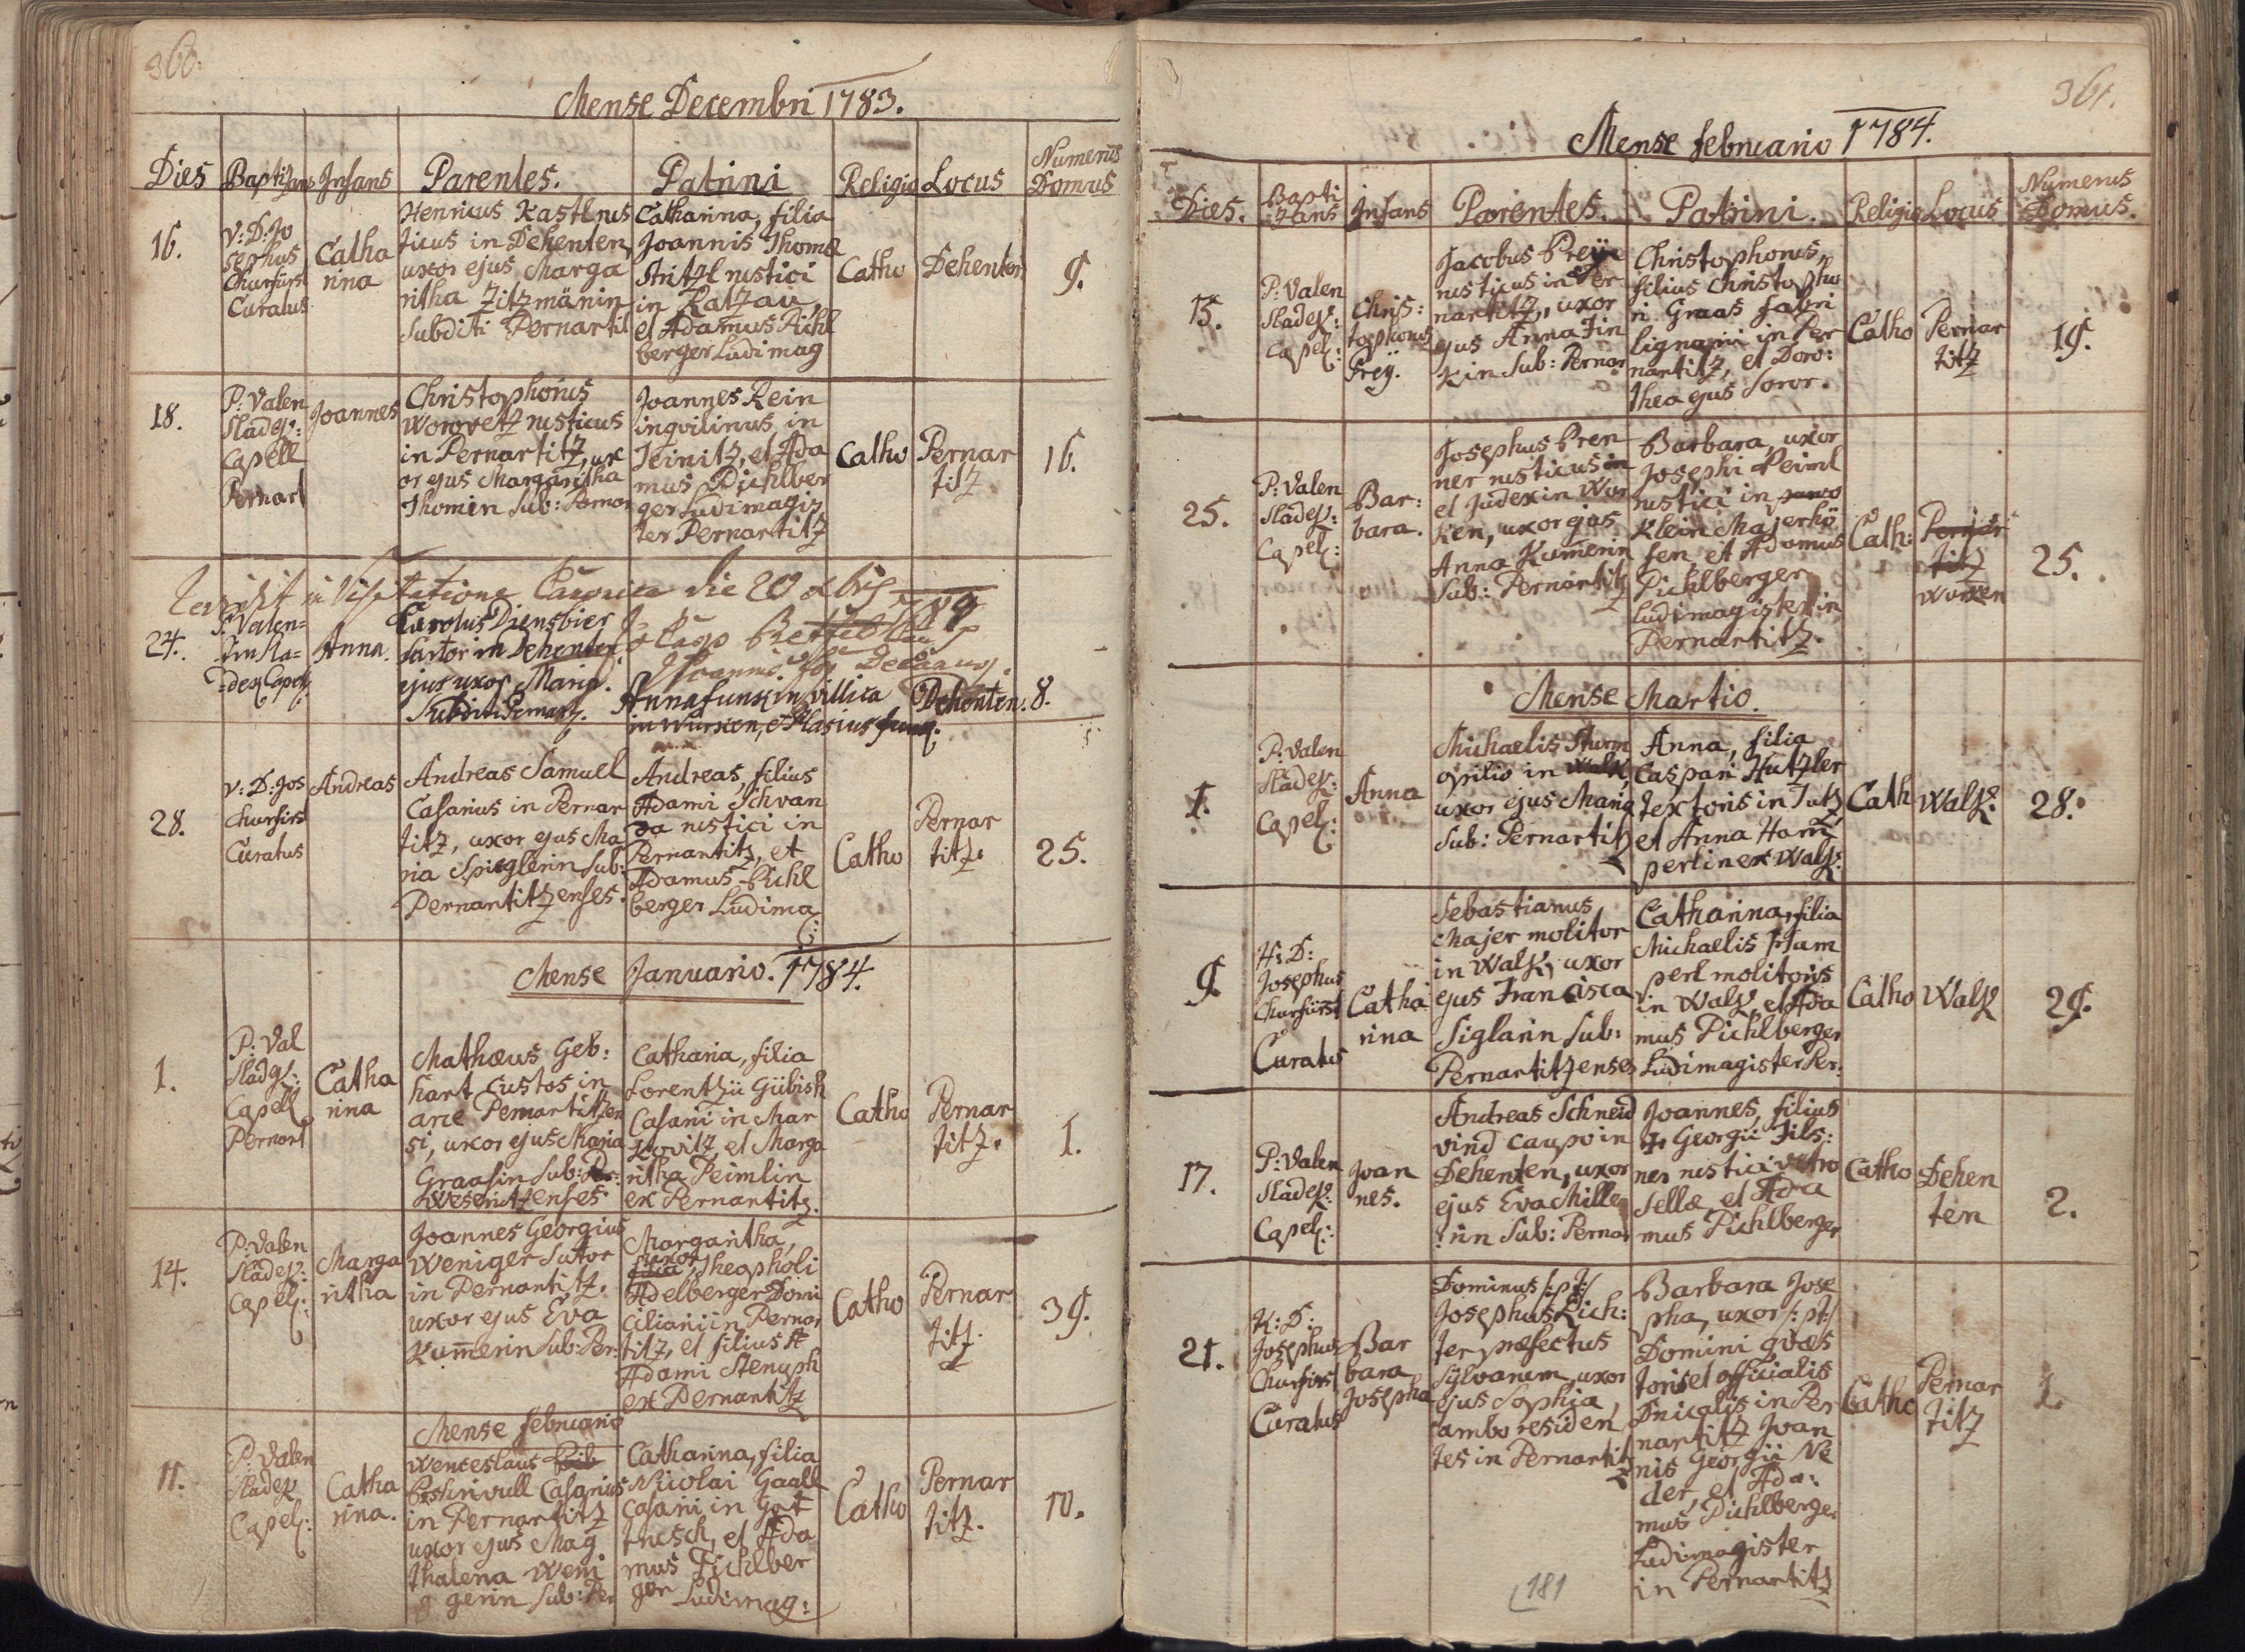 360.
Mense Decembri 1783.
Dies Baptizans Infans Parentes. Patrini Religio Locus Numerus Domus
16.
V: D: Jo
sephus
Churfürst
Curatus
Catha
rina
Henricus Kastl rus
ticus in Dehenten,
uxor ejus Marga
ritha Zitzmänin
Subditi Pernartit
Catharina, filia
Joannis Thomæ
Stritzl rustici
in Ratzau,
et Adamus Pichl
berger Ludimag
Catho
Dehenten
9.
18.
P: Valen
Sladek:
Capell
Pernart
Joannes
Christophorus
Worowetz rusticus
in Pernartitz, ux
or ejus Margaritha
Thomin Sub: Pernar
Joannes Rein
inqvilinus in
Teinitz, et Ada
mus Pichlber
ger Ludimagis
ter Pernartitz
Catho
Pernar
titz
16.
in Visitatione Canonica die 20 xbris
24.
P. Valen=
tin Sla=
=dek Capel:
Anna.
Carolus Diensbier
Sartor in Dehenten
ejus uxor Maria.
Subditi Pernart.
Anna Funkin villica
in Wurken, et Blasius Funk.
Dehenten.
8.
28.
V: D: Jos
Churfirs
Curatus
Andreas
Andreas Samuel
Casarius in Pernar
titz, uxor ejus Ma
ria Spieglerin Sub:
Pernartitzenses.
Andreas, filius
Adami Schvan
da rustici in
Pernartitz, et
Adamus Pichl
berger Ludima
G:
Catho
Pernar
titz.
25.
Mense Januario. 1784.
1.
P: Val
Sladek:
Capell
Pernart
Catha
rina
Mathæus Geb:
hart custos in
arce Pernartitzen
si, uxor ejus Maria
Graasin Sub: Per:
Weseritzenses
Catharia, filia
Lorentzii Gübish
Casarii in Mar
kovitz, et Marga
ritha Peimlin
ex Pernartitz.
Catho
Pernar
titz.
1.
14.
P: Valen
Sladek:
Capel:
Marga
ritha
Joannes Georgius
Weniger Sutor
in Pernartitz.
uxor ejus Eva
Kum̄erin Sub: Per:
Margaritha,
uxor Theopholi
Adelberger Domi
ciliarii in Pernar
titz, et filius A
Adami Stenyph
ex Pernartitz
Catho
Pernar
titz.
39.
Mense februario
11.
P. Valen
Sladek
Capel:
Catha
rina.
Wenceslaus
Peshrivull Casarius
in Pernartitz
uxor ejus Mag
thalena Weni
gerin Sub: Per
Catharina, filia
Nicolai Gaall
casarii in Got
trusch, et Ada
mus Pichlber
ger Ludimag:
Catho
Pernar
titz.
10.
361.
Mense februario 1784.
Dies. Bapti zans Infans Parentes. Patrini. Religio Locus Numerus Domus.
15.
P: Valen
Sladek:
Capel:
Chris:
tophorus
Preÿ.
Jacobus Preÿ
rusticus in Per
nartitz, uxor
ejus Anna Fin
kin Sub: Pernar
Christophorus,
filius Christopho
ri Graas fabri
lignarii in Per
nartitz, et Doro:
thea ejus Soror.
Catho
Pernar
titz
19.
25.
P: Valen
Sladek:
Capel:
Bar:
bara.
Josephus Pren
ner rusticus in
et Judex in Wor
ken, uxor ejus
Anna Kum̄erin
Sub: Pernartitz
Barbara, uxor
Josephi Peiml
rustici in
Klein Majerhö
fen, et Adamus
Pichlberger
Ludimagister in
Pernartitz.
Cath:
Pernar
titz
Wurken
25.
Mense Martio.
1.
P: Valen
Sladek:
Capel:
Anna
Michaelis Sturm
opilio in Walk,
uxor ejus Maria
Sub: Pernartitz
Anna, filia
Caspari Hutzler
textoris in Tutz
et Anna Ham̄
perlin ex Walk:
Cath
Walk:
28.
9.
H: D:
Josephus
Churfürst
Curatus
Catha
rina
Sebastianus
Majer molitor
in Walk, uxor
ejus Francisca
Siglarin Sub:
Pernartitzenses
Catharina, filia
Michaelis Ham
perl molitoris
in Walk, et Ada
mus Pichlberger
Ludimagister Per:
Catho
Walk
29.
17.
P: Valen
Sladek:
Capel:
Joan
nes.
Andreas Schneid
vind caupo in
Dehenten, uxor
ejus Eva Mille
rin Sub: Pernar
Joannes, filius
Georgii Fils:
ner rustici
sellæ, et Ada
mus Pichlberger
Catho
Dehen
ten
2.
21.
K: D:
Josephus
Churfirst
Curatus
Bar
bara
Josepha
Dominus /: pt :/
Josephus Rich:
ter præfectus
Sylvarum, uxor
ejus Sophia,
ambo residen
tes in Pernartitz
Barbara Jose
pha, uxor /: pt :/
Domini qvæs
toris et officialis
Dnicalis in Per
nartitz Joan
nis Georgii Ne
der, et Ada:
mus Pichlberger
Ludimagister
in Pernartitz
Catho
Pernar
titz
1.
181